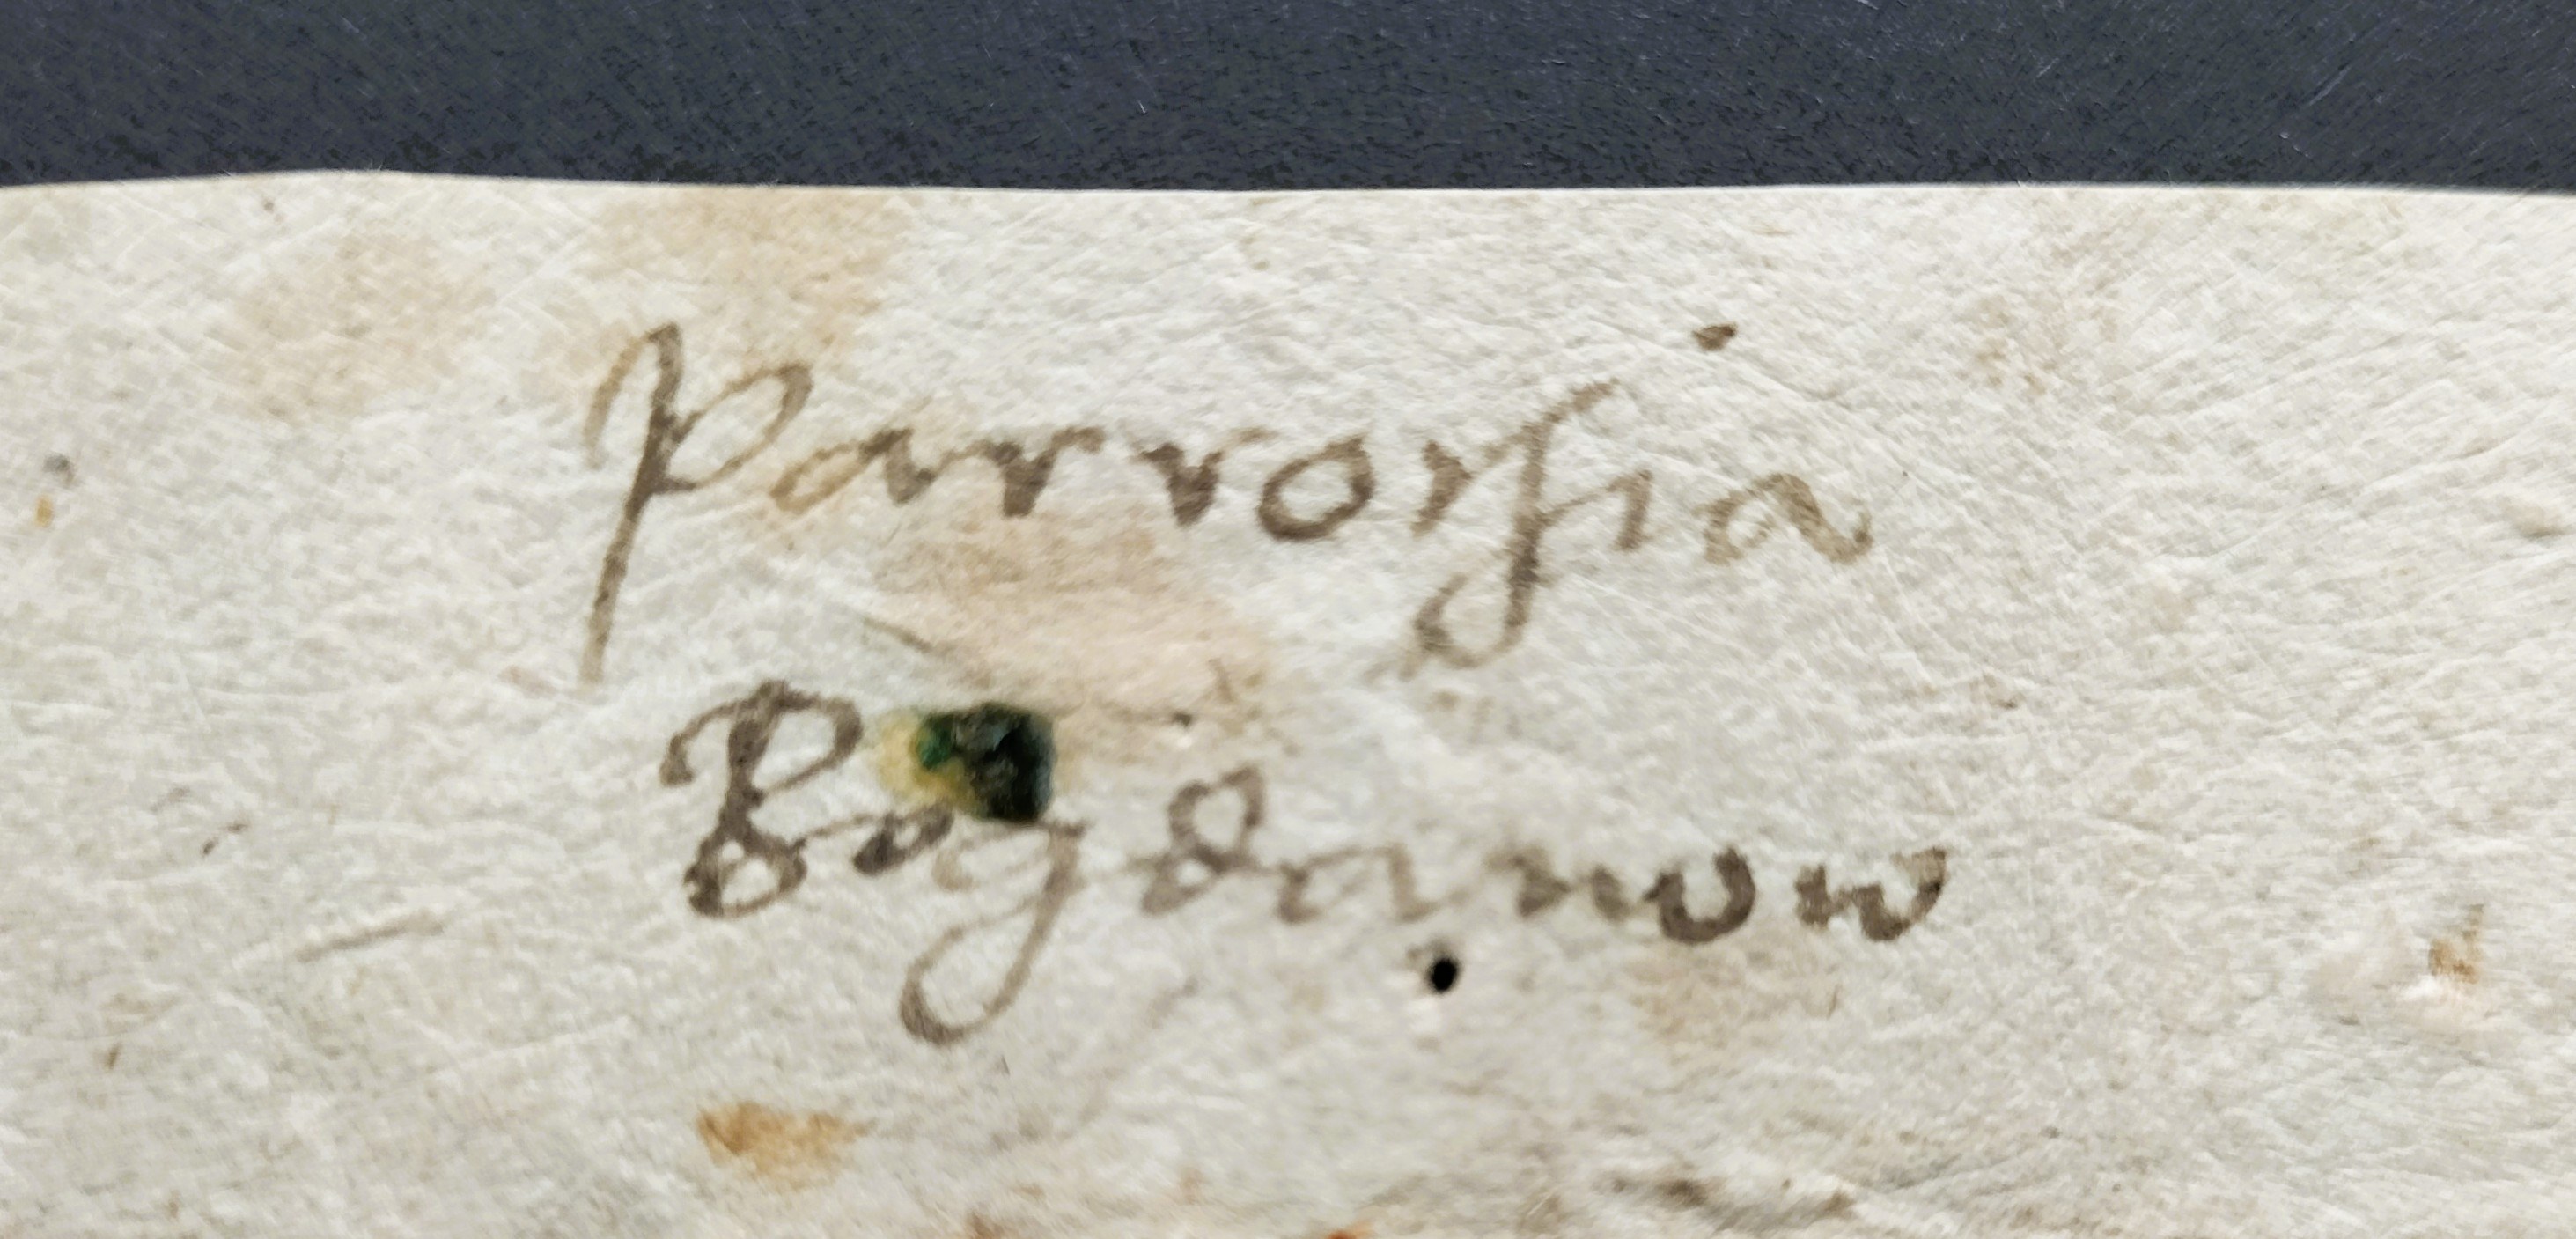 Parrofia
Bogdanow